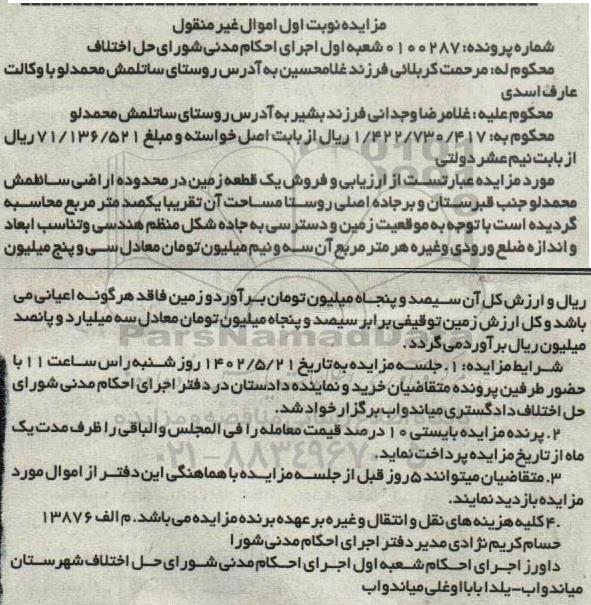 مزایده نوبت اول اموال غیر منقول
شماره پرونده: ۰۱۰۰۲۸۷ شعبه اول اجرای احکام مدنی شورای حل اختلاف
محکوم له: مرحمت کربلائی فرزند غلامحسین به آدرس روستای ساتلمش محمدلو با وکالت
عارف اسدی
محکوم علیه: غلامرضا وجدانی فرزند بشیر به آدرس روستای ساتلمش محمدلو
محکوم به: ۱/۴۲۲/۷۳۰/۴۱۷ ریال از بابت اصل خواسته و مبلغ ۷۱/۱۳۶/۵۲۱ ریال
از بابت نیم عشر دولتی
مورد مزایده عبارتست از ارزیابی و فروش یک قطعه زمین در محدوده اراضی ساطمش
محمدلو جنب قبرستان و بر جاده اصلی روستا مساحت آن تقریبا یکصد متر مربع محاسبه
گردیده است با توجه به موقعیت زمین و دسترسی به جاده شکل منظم هندسی وتناسب ابعاد
و اندازه ضلع ورودی وغیره هر متر مربع آن سه و نیم میلیون تومان معادل سی و پنج میلیون
ریال و ارزش کل آن سیصد و پنجاه میلیون تومان برآورد و زمین فاقد هرگونه اعیانی می
باشد و کل ارزش زمین توقیفی برابر سیصد و پنجاه میلیون تومان معادل سه میلیارد و پانصد
میلیون ریال برآورد می گردد.
شرایط مزایده: ۱. جلسه مزایده به تاریخ ۱۴۰۲/۵/۲۱ روز شنبه راس ساعت ۱۱ با
حضور طرفین پرونده متقاضیان خرید و نماینده دادستان در دفتر اجرای احکام مدنی شورای
حل اختلاف دادگستری میاندواب برگزار خواد شد.
۲. پرنده مزایده بایستی ۱۰ درصد قیمت معامله را فی المجلس والباقی را ظرف مدت یک
ماه از تاریخ مزایده پرداخت نماید.
۳. متقاضیان میتوانند ۵ روز قبل از جلسه مزایده با هماهنگی این دفتر از اموال مورد
مزایده بازدید نمایند.
۴. کلیه هزینه های نقل و انتقال و غیره بر عهده برنده مزایده می باشد. م الف ۱۳۸۷۶
حسام کریم نژادی مدیر دفتر اجرای احکام مدنی شورا
داورز اجرای احکام شعبه اول اجرای احکام مدنی شورای حل اختلاف شهرستان
میاندواب-یلدا بابااوغلی میاندواب
ParsNamadData
۰۲۱-۸۸۳۴۹۶۷۰